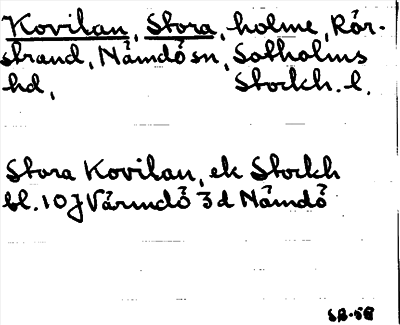 Kovilan, Stora, holme, Rör-
strand, Nämdö sn, Sotholms
hd, Stockh. l.
Stora Kovilan, ek Stockh
bl. 10 J Värmdö 3 d Nämdö
SB-58